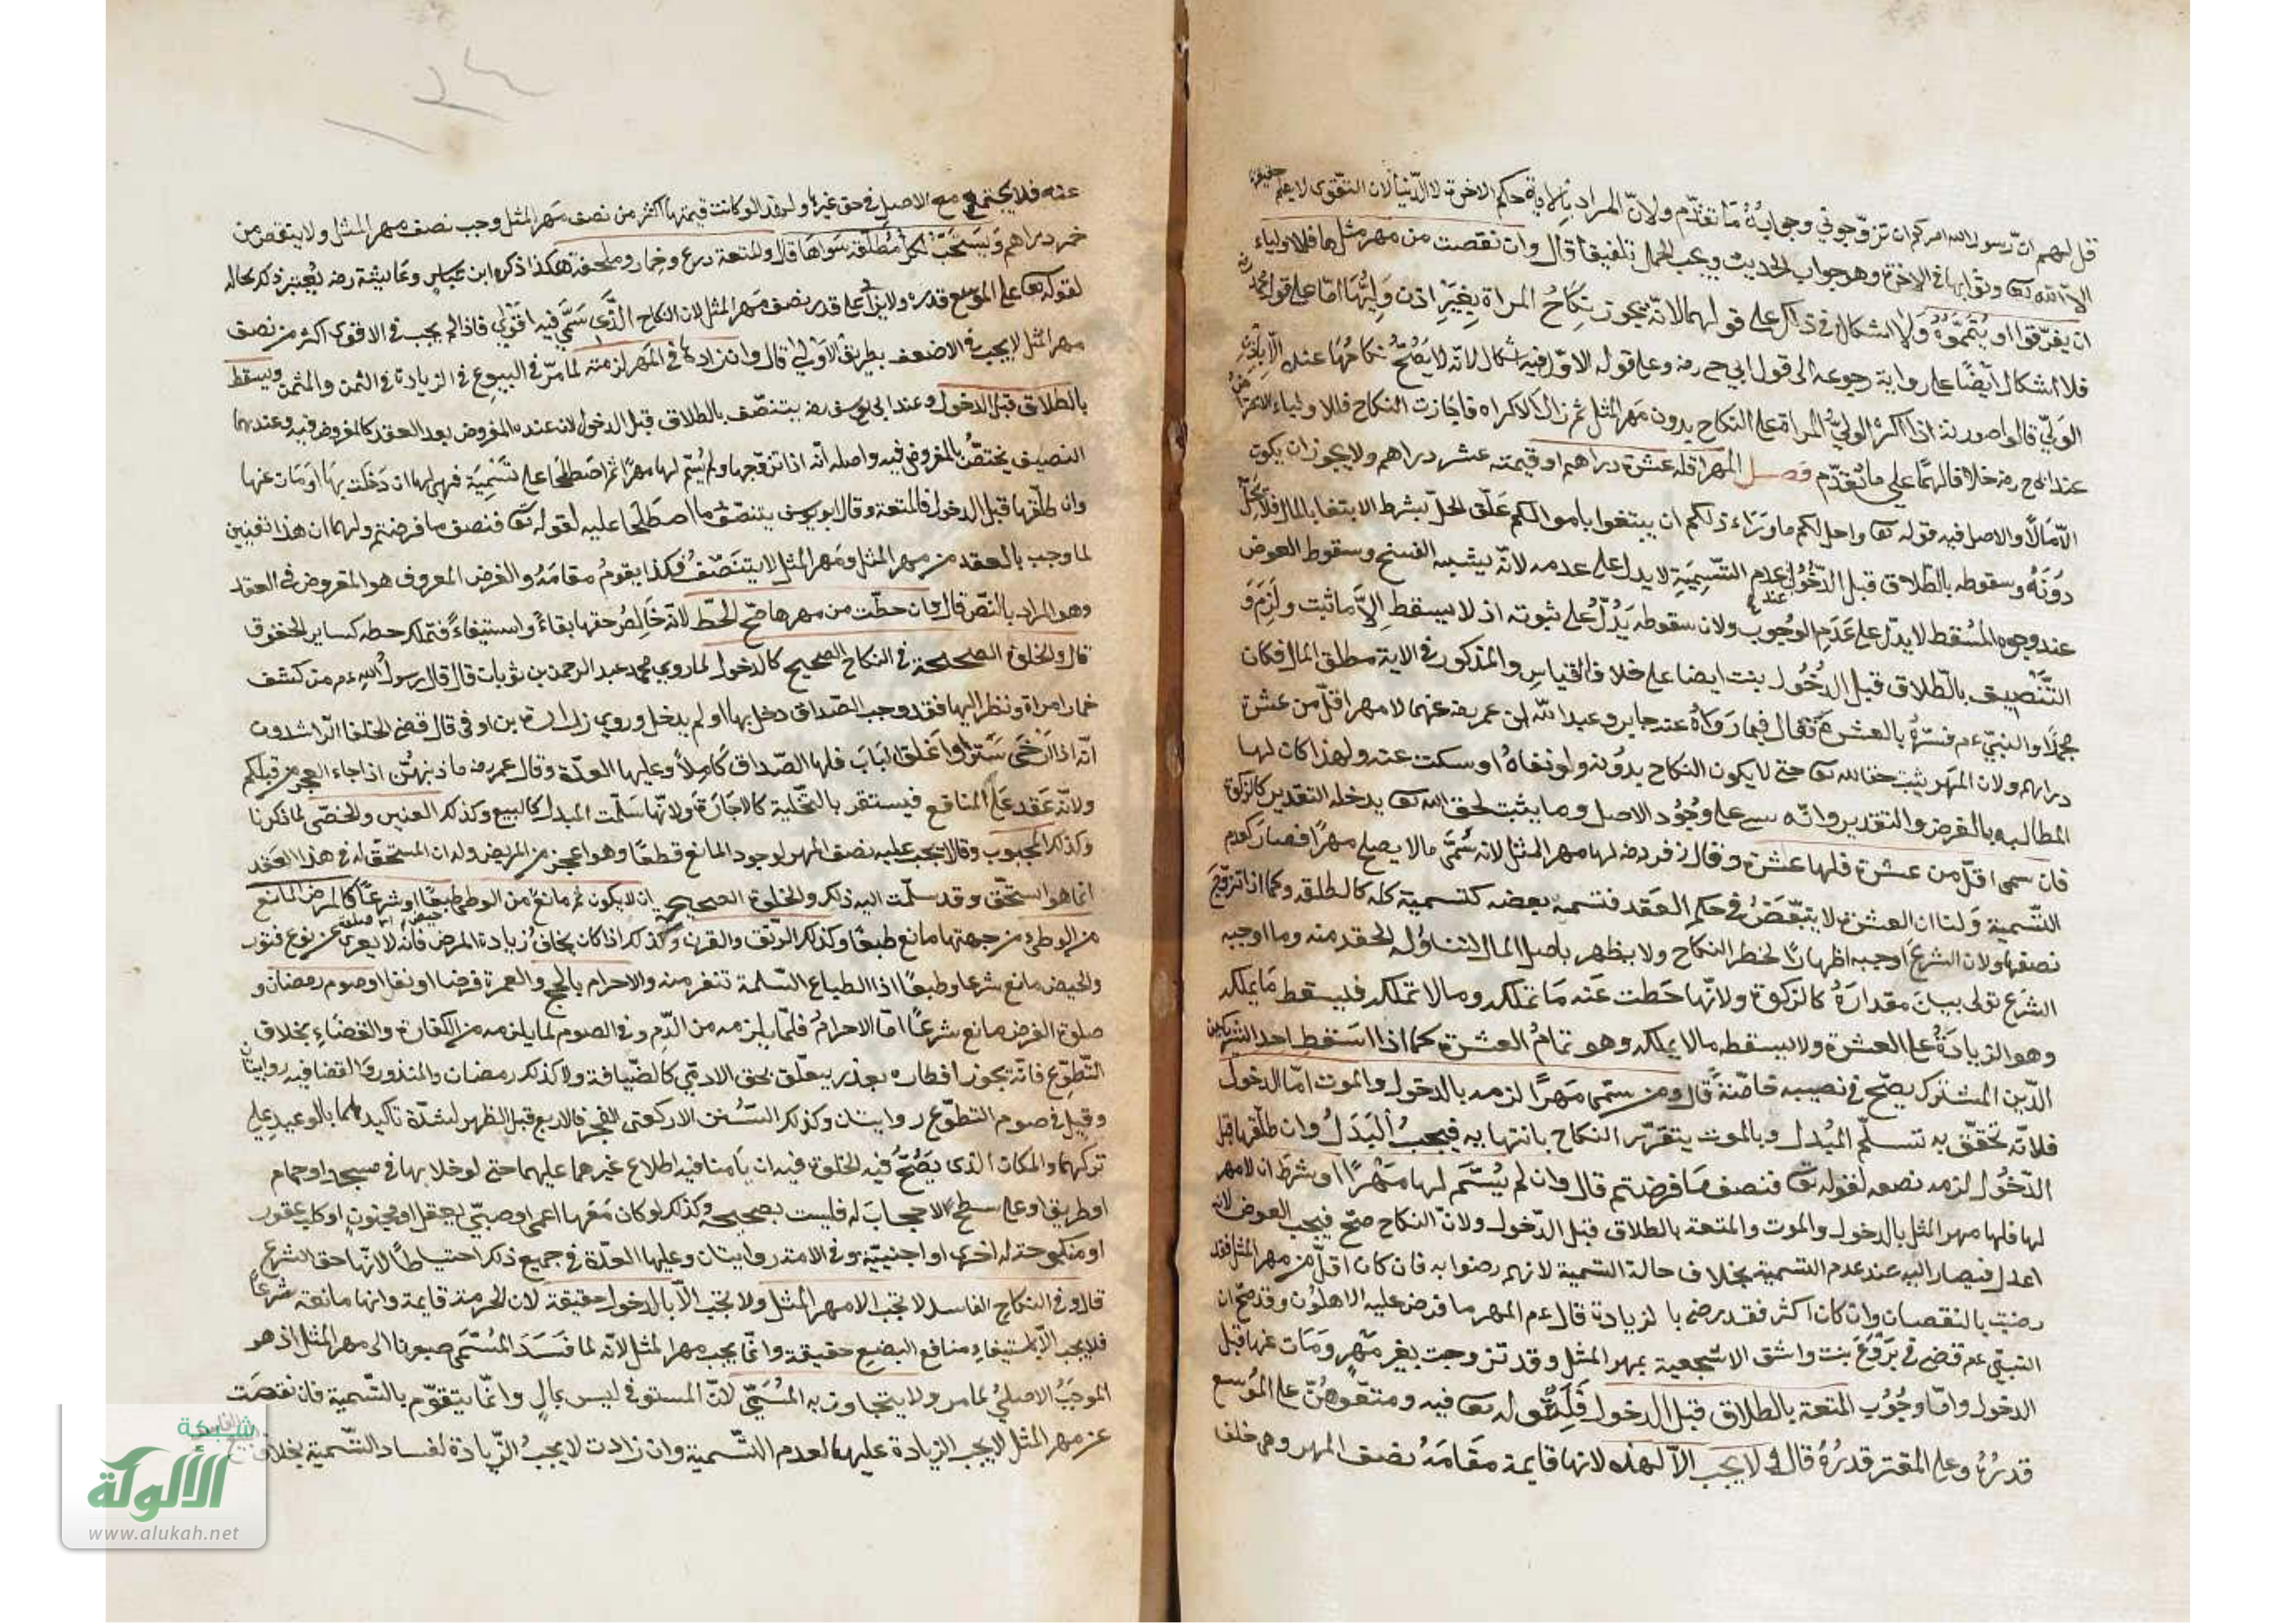 قل لهم ان رسول الله امركم ان تزوجوني وجوابه ما تقدم ولان المراد بالاية حكم الاخرة لا الدنيا لان التقوى لا يعلم حقيقة
الا الله تعا وثوابها في الاخرة وهو جواب الحديث ويجب الحمل تلفيقا قال وان نقصت من مهر مثلها فللاولياء
ان يفرقوا او يتمموه ولا اشكال في ذلك على قولهما لانه يجوز نكاح المراة بغير اذن وليها اما على قول محمد
فلا اشكال ايضا على رواية رجوعه الى قول ابي ح رضه وعلى قوله الاول فيه اشكال لانه لا يصح نكاحها عنده الا باذن
الولي قالوا صورته اذا اكره الولي المراة على النكاح بدون مهر المثل ثم زال الاكراه فاجازت النكاح فللاولياء الاعتراض
عند ابي ح رضه خلافا لهما على ما تقدم فصل المهر اقله عشرة دراهم او قيمته عشر دراهم ولا يجوز ان يكون
الا مالا والاصل فيه قوله تعا واحل لكم ما وراء ذلكم ان تبتغوا باموالكم علق الحل بشرط الابتغا بالمال فلا يحل
دونه وسقوطه بالطلاق قبل الدخول عند عدم التسمية لا يدل على عدمه لانه يشبه الفسخ وسقوط العوض
عند وجوه المسقط لا يدل على عدم الوجوب ولان سقوطه يدل على ثبوته اذ لا يسقط الا ما ثبت ولزم و
التنصيف بالطلاق قبل الدخول بنت ايضا على خلاف القياس والمذكور في الاية مطلق المال فكان
مجملا والنبي عم فسره بالعشرة فقال فيما رواه عنه جابر وعبد الله ابن عمر رضه عنهما لا مهر اقل من عشرة
دراهم ولان المهر يثبت حقا لله تعا حتى لا يكون النكاح بدونه ولو نفاه او سكت عنه ولهذا كان لها
المطالبه بالفرض والتقدير وانه على وجود الاصل وما يثبت لحق الله تعا يدخله التقدير كالزكوة
فان سمى اقل من عشرة فلها عشرة وقال زفر رضه لها مهر المثل لانه سمى مالا يصلح مهرا فصار كعدم
التسمية ولنا ان العشرة لا يتبعض في حكم العقد فتسمية بعضه كتسمية كله كالطلقه وكما اذا تزوج
نصفها ولان الشرع اوجبه اظهارا لخطر النكاح ولا يظهر باصل المال لتناوله الحقير منه وما اوجبه
الشرع تولى بيان مقداره كالزكوة ولانها حطت عنه ما تملكه وما لا تملكه فيسقط ما يملكه
وهو الزيادة على العشرة ولا يسقط مالا يملكه وهو تمام العشرة كما اذا اسقط احد الشريكين
الدين المشترك يصح في نصيبه خاصة قال ومن سمى مهرا لزمه بالدخول والموت اما الدخول
فلانه تحقق به تسلم المبدل وبالموت يتقرر النكاح بانتهايه فيجب البدل وان طلقها قبل
الدخول لزمه نصفه لقوله تعا فنصف ما فرضتم قال وان لم يسم لها مهرا او شرط ان لا مهر
لها فلها مهر المثل بالدخول والموت والمتعة بالطلاق قبل الدخول ولان النكاح صح فيجب العوض لانه
اعدل فيصار اليه عند عدم التسمية بخلاف حالة التسمية لانهم رضوا به فان كان اقل من مهر المثل فقد
رضيت بالنقصان وان كان اكثر فقد رضى بالزيادة قال عم المهر ما فرض عليه الاهلون وقد صح ان
النبي عم قضى في بروع بنت واشق الاشجعية بمهر المثل وقد تزوجت بغير مهر ومات عنها قبل
الدخول واما وجوب المتعة بالطلاق قبل الدخول فلقوله تعا فيه ومتعوهن على الموسع
قدره وعلى المقتر قدره قال لا يجب الا لهذه لانها قايمة مقامه نصف المهر وهي خلف
١٣٤
عنه فلا يجتمع مع الاصل في حق غيرها ولهذا لو كانت قيمتها اكثر من نصف مهر المثل وجب نصف مهر المثل ولا ينقص من
خمر دراهم ويستحب لكل مطلقة سواها قال والمتعة درع وخمار وملحفة هكذا ذكره ابن عباس وعائيشة رضه يعتبر ذلك بحاله
لقوله تعا على الموسع قدره ولا يزاد على قدر نصف مهر المثل لان النكاح الذي سمى فيه اقوى فاذا لم يجب في الاقوى اكثر من نصف
مهر المثل لا يجب في الاضعف بطريق الاولى قال وان زادها في المهر لزمته لما مر في البيوع في الزيادة في الثمن والمثمن ويسقط
بالطلاق قبل الدخول وعند ابي يوسف رضه يتنصف بالطلاق قبل الدخول لان عنده المفروض بعد العقد كالمفروض فيه وعندهما
التنصيف يختص بالمفروض فيه واصله انه اذا تزوجها ولم يسم لها مهرا ثم اصطلحا على تسمية فهي لها ان دخلت بها او مات عنها
وان طلقها قبل الدخول فالمتعة وقال ابو يوسف يتنصف ما اصطلحا عليه لقوله تعا فنصف ما فرضتم ولهما ان هذا تعيين
لما وجب بالعقد من مهر المثل ومهر المثل لا يتنصف فكذا يقوم مقامه والفرض المعروف هو المفروض في العقد
وهو المراد بالنص قال وان حطت من مهرها صح الحط لانه خالص حقها بقاء واستيفاء فتملك حطه كساير الحقوق
قال والخلوة الصحيحة في النكاح الصحيح كالدخول لما روي محمد عبد الرحمن بن ثوبان قال قال رسول الله عم من كشف
خمار امراة ونظر اليها فقد وجب الصداق دخل بها او لم يدخل وروي زرارة بن اوفى قال قضى الخلفا الراشدون
انه اذا ارخى سترا واغلق الباب فلها الصداق كاملا وعليها العدة وقال عمر رضه ما ذنبهن اذا جاء العجز من قبلكم
ولانه عقد على المنافع فيستقر بالتخلية كالاجارة ولانها سلمت المبدل كالبيع وكذلك العنين والخصى لما ذكرنا
وكذلك المجبوب وقالا يجب عليه نصف المهر لوجود المانع قطعا وهو اعجز من المريض وله ان المستحق له في هذا العقد
انما هو السحق وقد سلمت اليه ذلك والخلوة الصحيحة ان لا يكون ثم مانع من الوطى طبعا او شرعا كالمرض المانع
من الوطى من جهتها مانع طبعا وكذلك الرتق والقرن وكذلك اذا كان يخاف زيادة المرض فانه لا يعرى عن نوع فتور
والحيض مانع شرعا وطبعا اذ الطباع السلمة تنفر منه والاحرام بالحج والعمرة فرضا او نفلا وصوم رمضان و
صلوة الفرض مانع شرعا اما الاحرام فلما يلزمه من الدم وفي الصوم لما يلزمه من الكفارة والقضاء بخلاف
التطوع فانه يجوز افطاره بعذر يتعلق بحق الادمي كالضيافة ولا كذلك رمضان والمنذور والقضا فيه روايتان
وقيل في صوم التطوع روايتان وكذلك السنن الا ركعتى الفجر والاربع قبل الظهر لشدة تاكيدهما بالوعيد على
تركهما والمكان الذي يصح فيه الخلوة فيه ان يأمنا فيه اطلاع غيرهما عليهما حتى لو خلا بها في مسجد او حمام
او طريق او على سطح لا حجاب له فليست بصحيحة وكذلك لو كان معها اعمى او صبي لا يعقل او مجنون او كلب عقور
او منكوحة له اخرى او اجنبية وفي الامة روايتان وعليها العدة في جميع ذلك احتياطا لانها حق الشرع
قال وفي النكاح الفاسد لا تجب الا مهر المثل ولا تجب الا بالدخول حقيقة لان الحرمة قايمة وانها مانعة شرعا
فلا يجب الا باستيفاء منافع البضع حقيقة وانما يجب مهر المثل لانه لما فسد المسمى صيرنا الى مهر المثل اذ هو
الموجب الاصلي لما مر ولا يتجاوز به المسمى لان المستوفى ليس بمال وانما يتقوم بالتسمية فان نقصت
عن مهر المثل لا يجب الزيادة عليها لعدم التسمية وان زادت لا يجب الزيادة لفساد التسمية بخلاف
شبكة
الألوكة
www.alukah.net